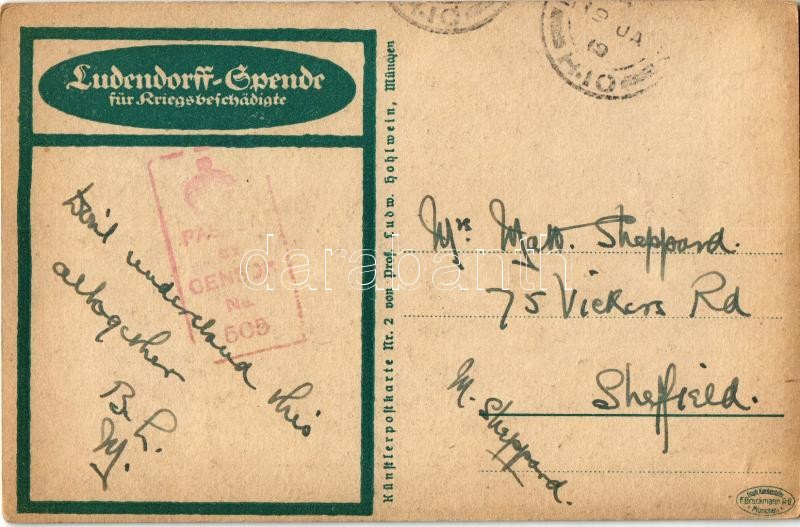 Ludendorff-Spende
für Kriegsbeschädigte
PASSED
BY
CENSOR
No.
505
Don't understand this
altogether
B. L.
M.
Künstlerpostkarte Nr. 2 von Prof. Ludw. Hohlwein, München
19 JA
19
Mrs Matt. Sheppard.
75 Vickers Rd
Sheffield.
M. Sheppard.
F. Bruckmann A.G.
München
darabanth